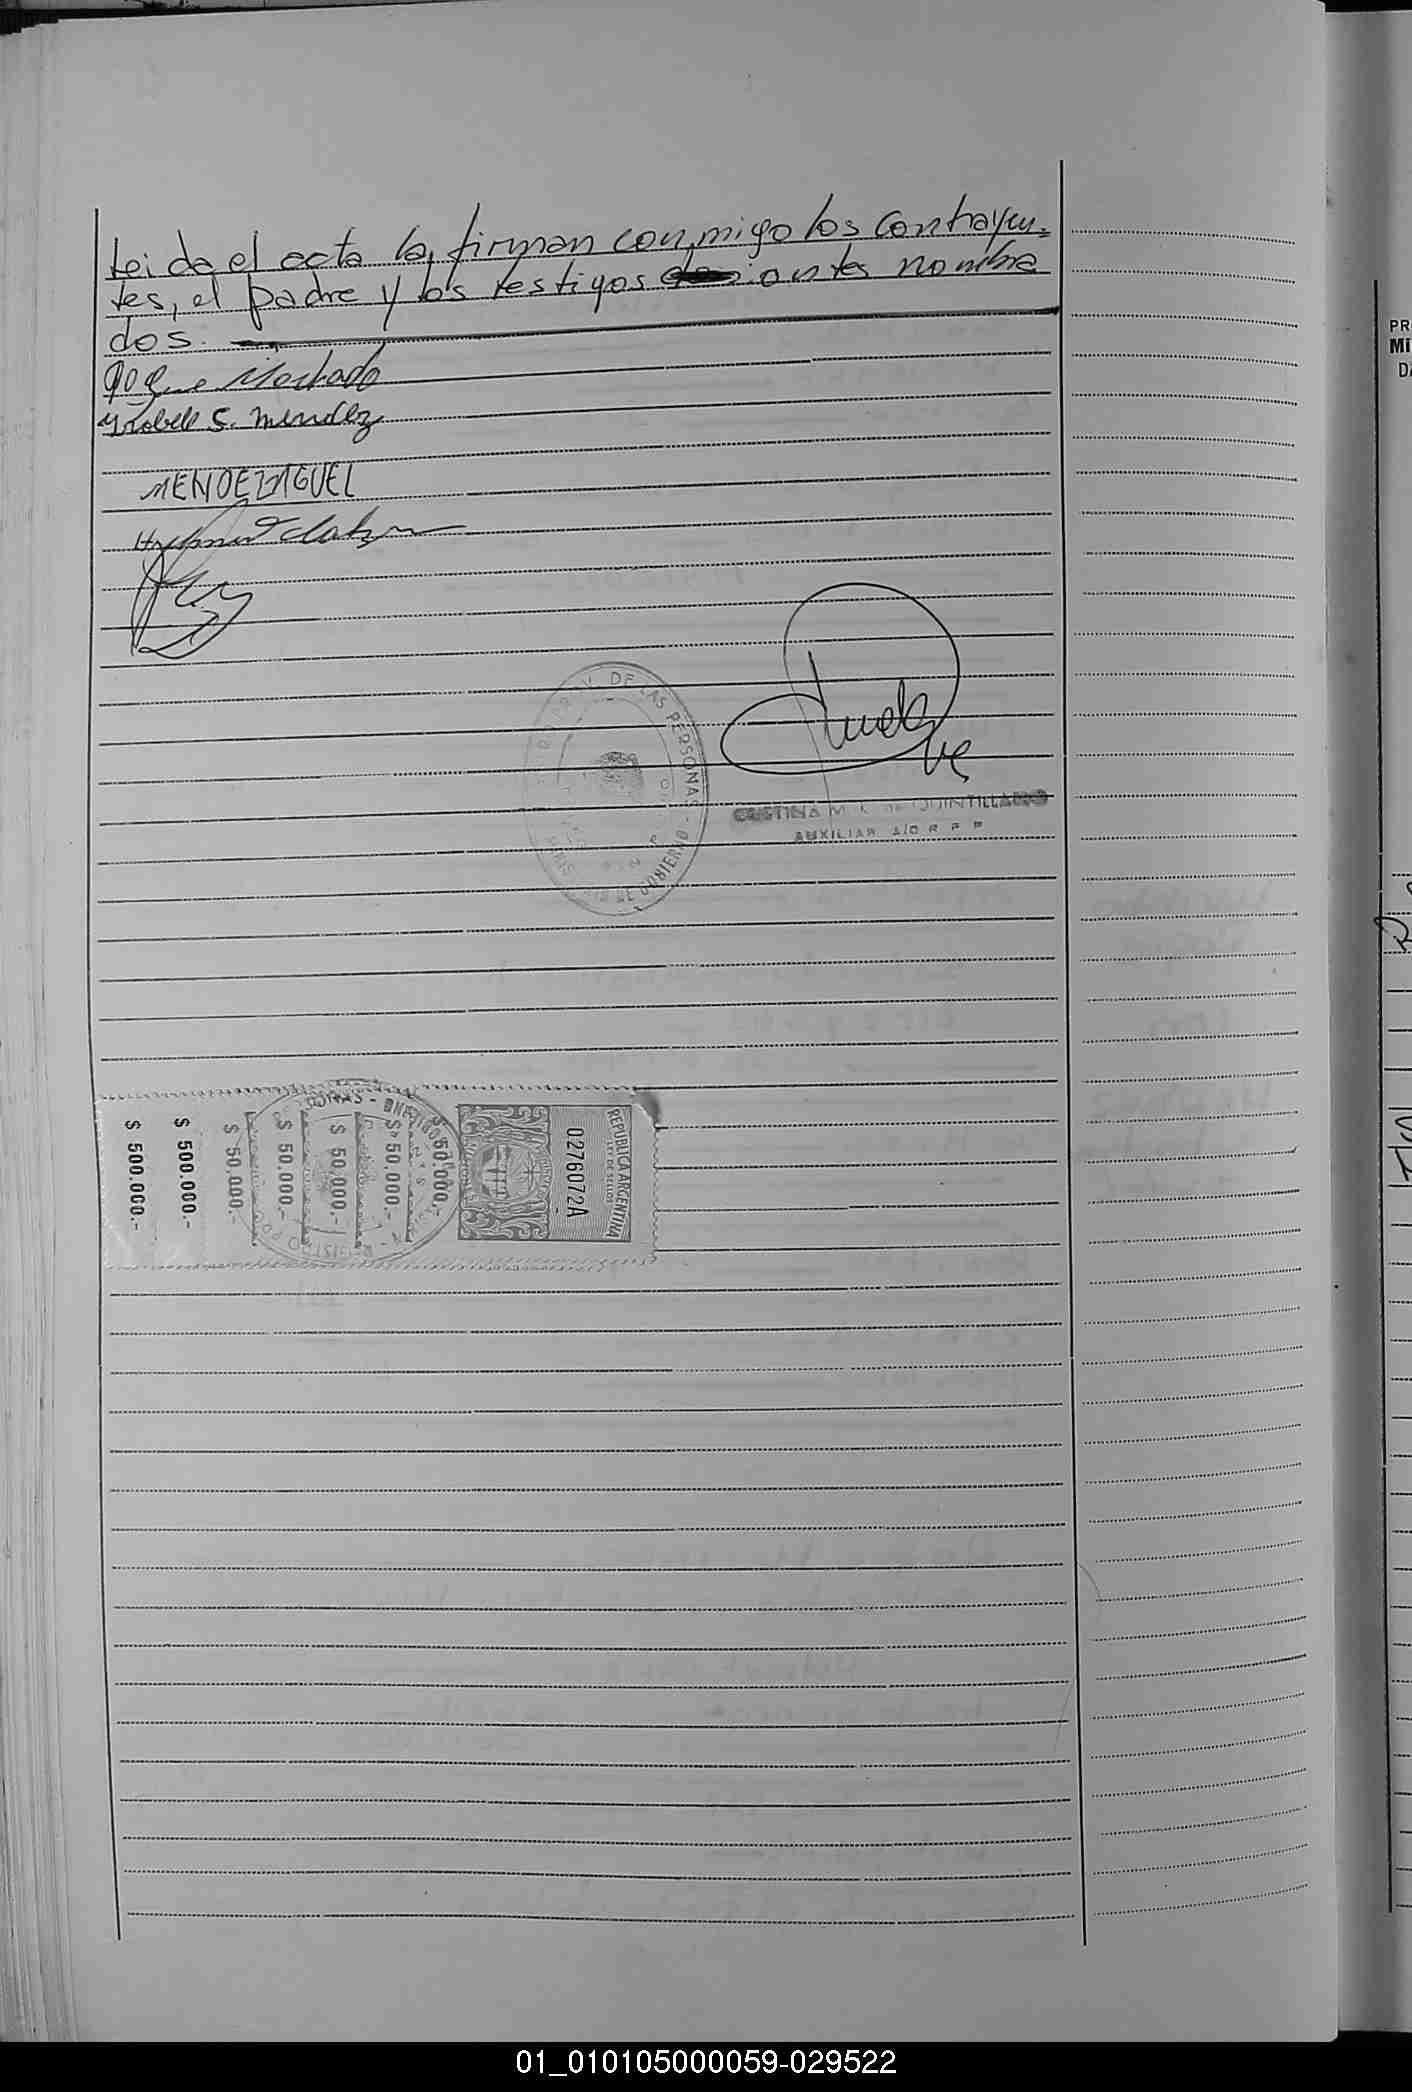 Leida el acta la firman conmigo los contrayen-
tes, el padre y los testigos antes nombra
dos.
Roque Machado
Ysabel S. Mendez
MENDEZ MIGUEL
DE LAS PERSONAS
DE GOBIERNO
DE QUINTILLANO
AUXILIAR A/C R P P
REPUBLICA ARGENTINA
LEY DE SELLOS
0276072A
$ 50.000.-
$ 50.000.-
$ 50.000.-
$ 50.000.-
$ 50.000.-
$ 500.000.-
$ 500.000.-
PR
Mi
D
01_010105000059-029522